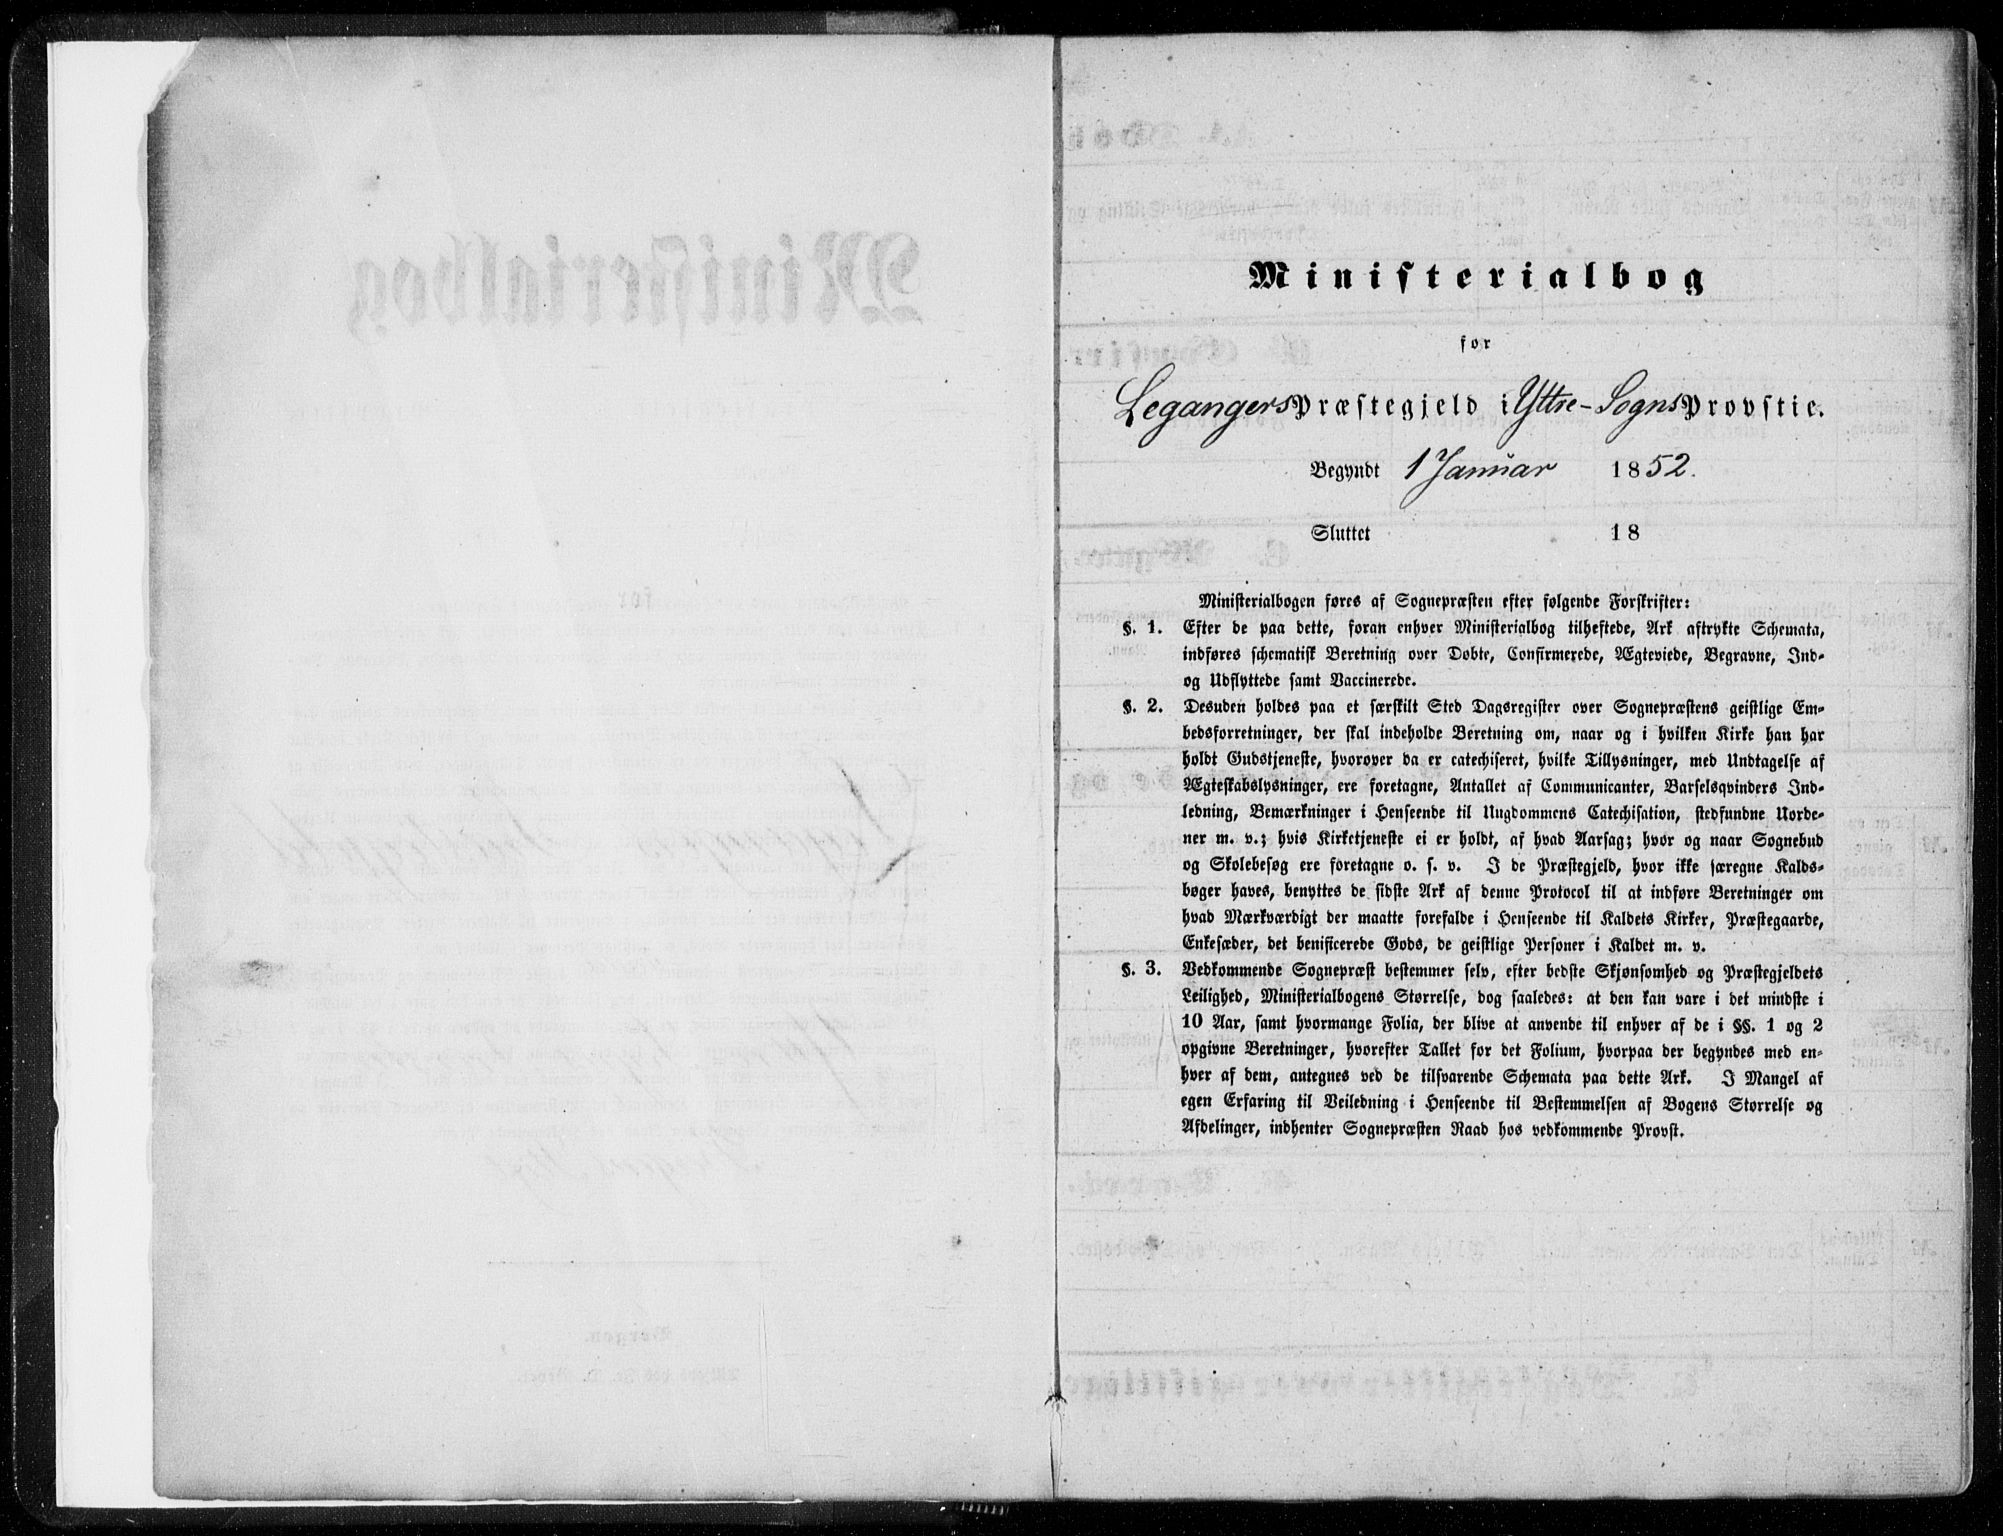 Ministerialbog
for
Legangers Præstegjeld i Yttre-Sogns Provstie.
Begyndt 1 Januar 1852.
Sluttet 18
Ministerialbogen føres af Sognepræsten efter følgende Forskrifter:
§. 1. Efter de paa dette, foran enhver Ministerialbog tilheftede, Ark aftrykte Schemata,
indføres schematisk Beretning over Døbte, Confirmerede, Ægteviede, Begravne, Ind-
og Udflyttede samt Vaccinerede.
§. 2. Desuden holdes paa et særskilt Sted Dagsregister over Sognepræstens geistlige Em-
bedsforretninger, der skal indeholde Beretning om, naar og i hvilken Kirke han har
holdt Gudstjeneste, hvorover da er catechiseret, hvilke Tillysninger, med Undtagelse af
Ægteskabslysninger, ere foretagne, Antallet af Communicanter, Barselsqvinders Ind-
ledning, Bemærkninger i Henseende til Ungdommens Catechisation, stedfundne Uorde-
ner m. v.; hvis Kirketjeneste ei er holdt, af hvad Aarsag; hvor og naar Sognebud
og Skolebesøg ere foretagne o. s. v. I de Præstegjeld, hvor ikke særegne Kalds-
bøger haves, benyttes de sidste Ark af denne Protocol til at indføre Beretninger om
hvad Mærkværdigt der maatte forefalde i Henseende til Kaldets Kirker, Præstegaarde,
Enkesæder, det benificerede Gods, de geistlige Personer i Kaldet m. v.
§. 3. Vedkommende Sognepræst bestemmer selv, efter bedste Skjønsomhed og Præstegjeldets
Leilighed, Ministerialbogens Størrelse, dog saaledes: at den kan vare i det mindste i
10 Aar, samt hvormange Folia, der blive at anvende til enhver af de i §§. 1 og 2
opgivne Beretninger, hvorefter Tallet for det Folium, hvorpaa der begyndes med en-
hver af dem, antegnes ved de tilsvarende Schemata paa dette Ark. I Mangel af
egen Erfaring til Veiledning i Henseende til Bestemmelsen af Bogens Størrelse og
Afdelinger, indhenter Sognepræsten Raad hos vedkommende Provst.